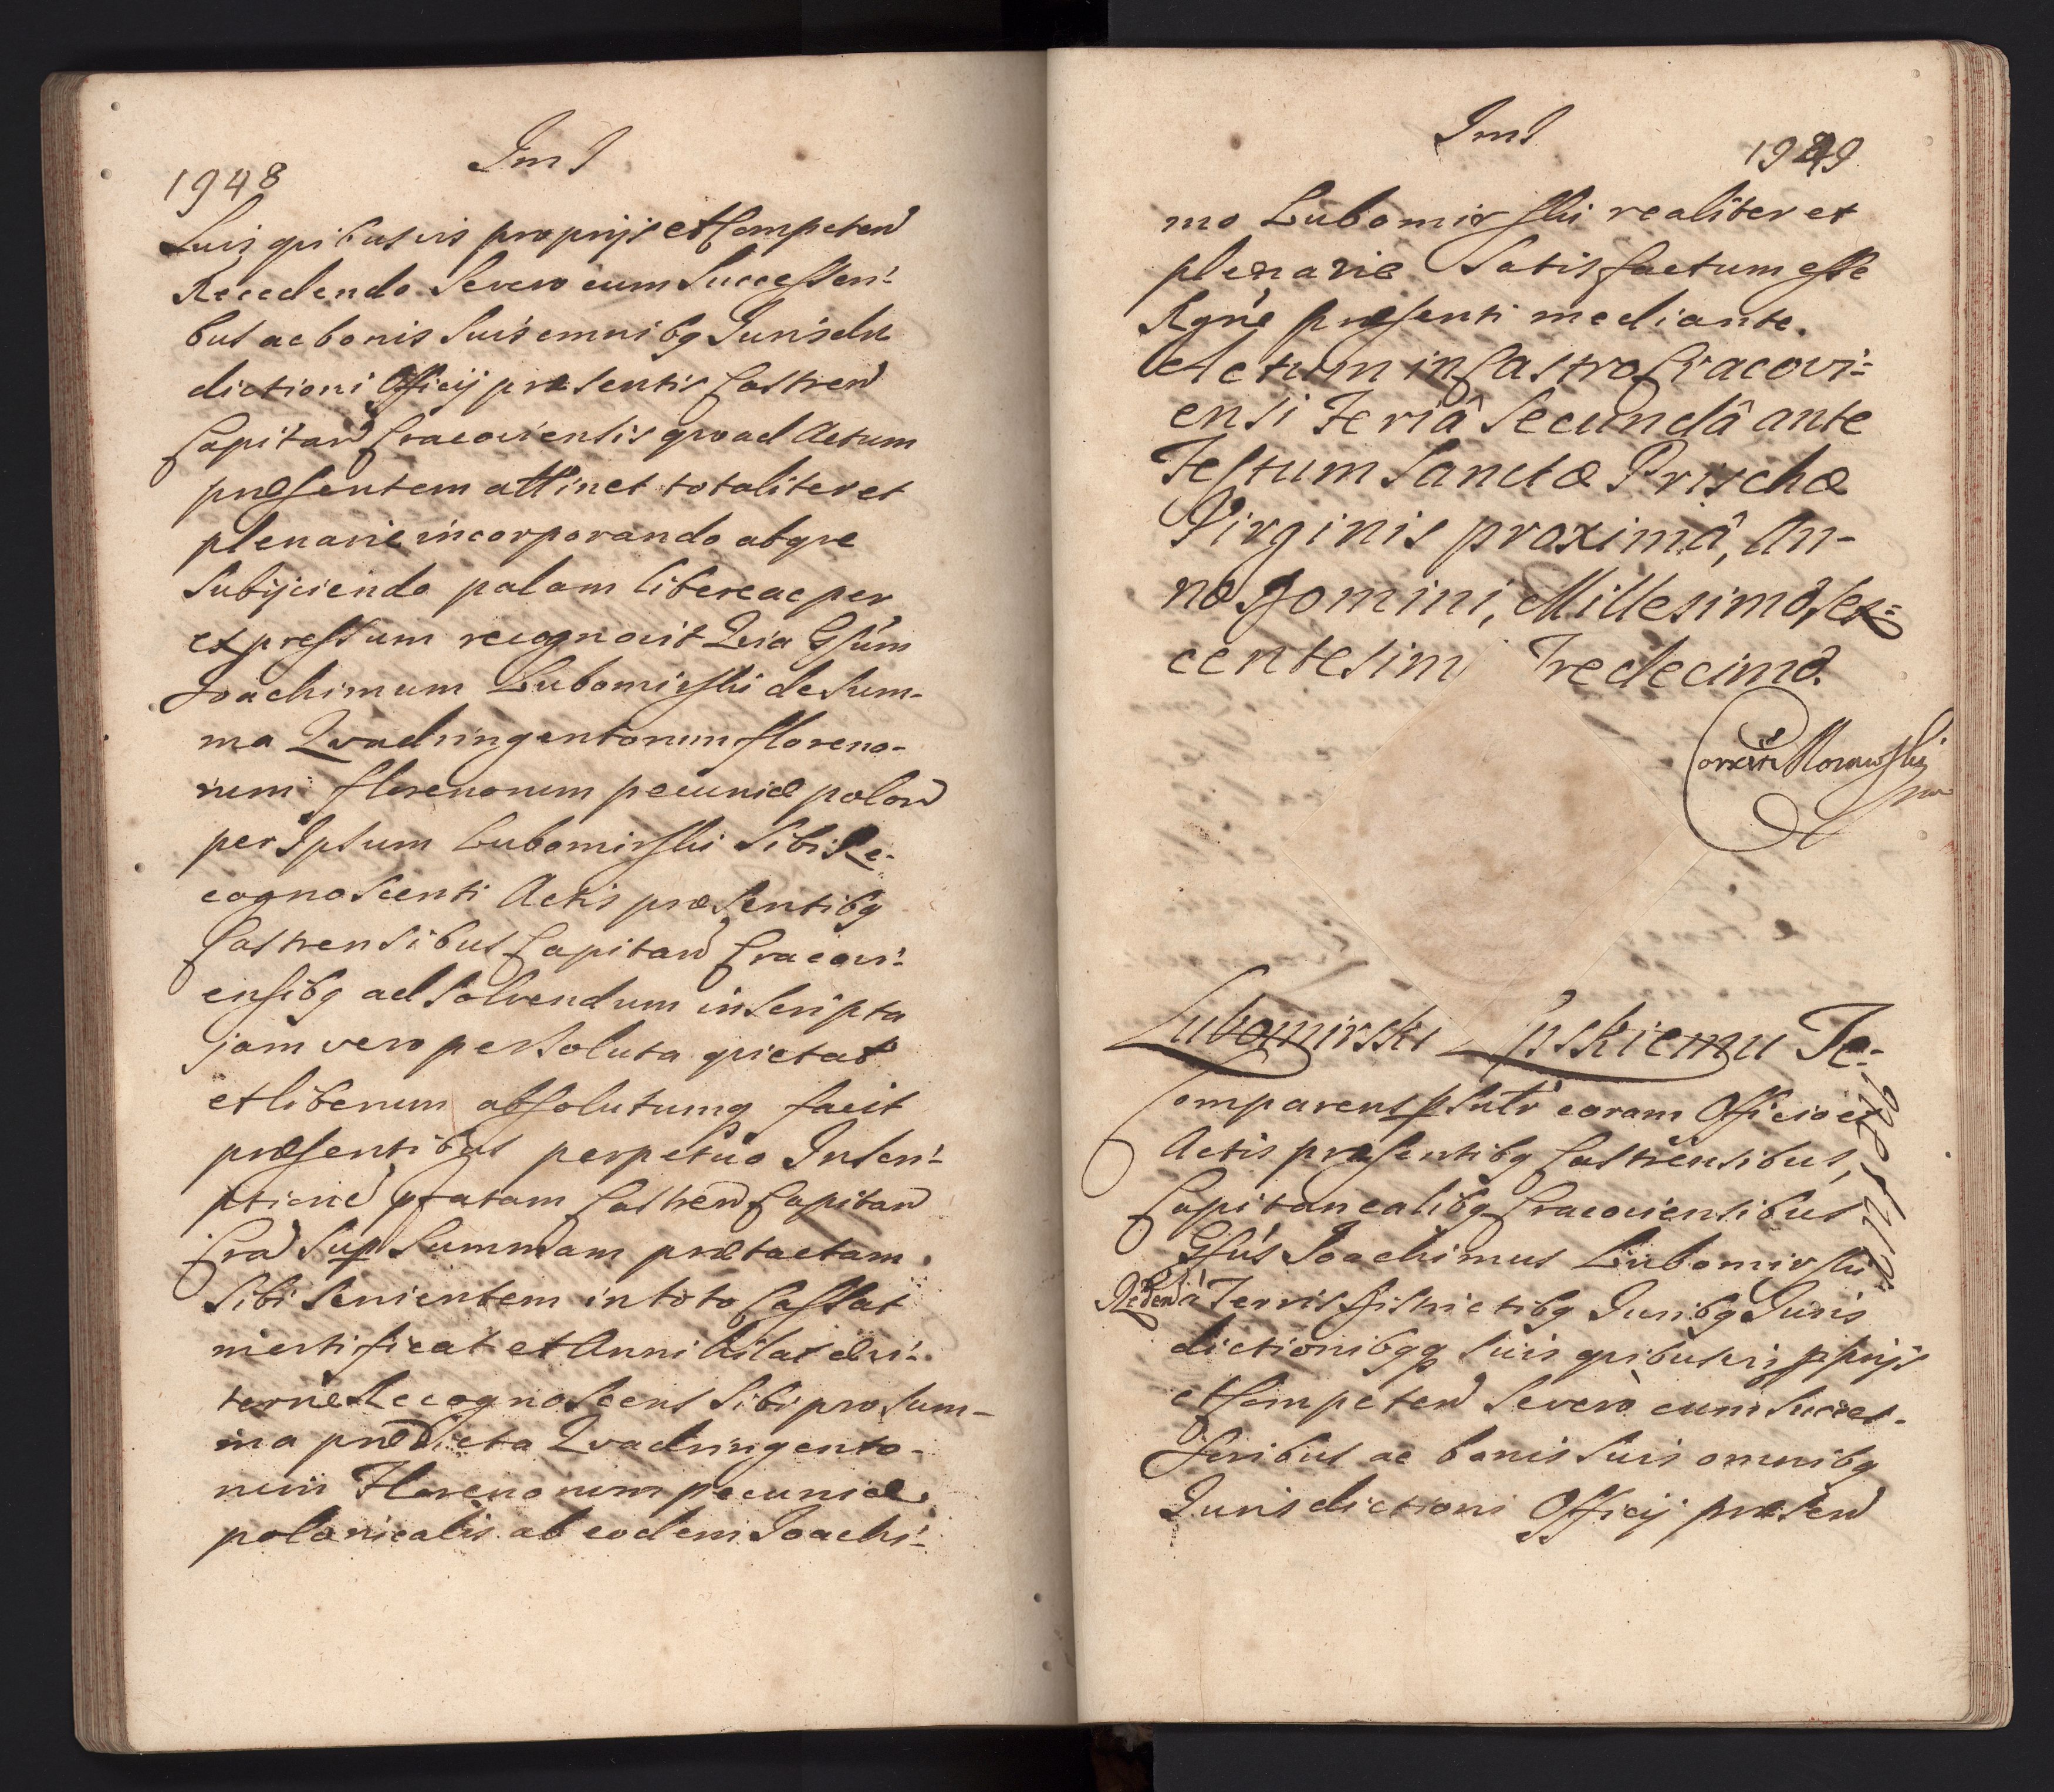 1948
Im I
Suis quibusvis proprijs et Competen
Recedendo Severo cum Successori-
bus ac bonis Suis omnibq Jurisdi
dictioni Officij præsentis Castren
Capitan Cracoviensis quoad Actum
præsentem attinet totaliter et
plenarie incorporando atque
Subijciendo palam libere ac per
expressum recognovit Quia Gsum
Joachimum Lubomirski de Sum-
ma Quadringentorum floreno-
rum florenorum pecuniæ polon
per Ipsum Lubomirski Sibi Re-
cognoscenti Actis præsentibq
Castrensibus Capitan Cracovi-
ensibq ad Solvendum inscripta
jam vero persoluta quietat
et liberum absolutumq facit
præsentibus perpetuo Inscri-
ptione pratam Castren Capitan
Cra Sup Summam prætactam
Sibi Servientem in toto Cassat
mortificat et Annihilat ævi-
terne Recognoscens Sibi pro Sum-
ma prædicta Quadringento-
rum Florenorum pecuniæ
polonicalis ab eodem Joachi-
Im I
1949
mo Lubomirski realiter et
plenarie Satisfactum esse
Rgne præsenti mediante.
Actum in Castro Cracovi-
ensi Feriâ Secundâ ante
Festum Sanctæ Prischæ
Virginis proximâ, An-
no Domini, Millesimo, sex-
centesim Tredecimo.
Correxit Morawski
mp
Lubomirski Lipskiemu Ze-
znawa
Comparens psntr coram Officio et
Actis præsentibq Castrensibus,
Capitanealibq Cracoviensibus
Gsus Joachimus Lubomirski
Reden à Terris Districtibq Juribq Juris
dictionibqq Suis quibusvis pprijs
et Competen Severo cum Succes-
soribus ac bonis Suis omnibq
Jurisdictioni Officij præsen